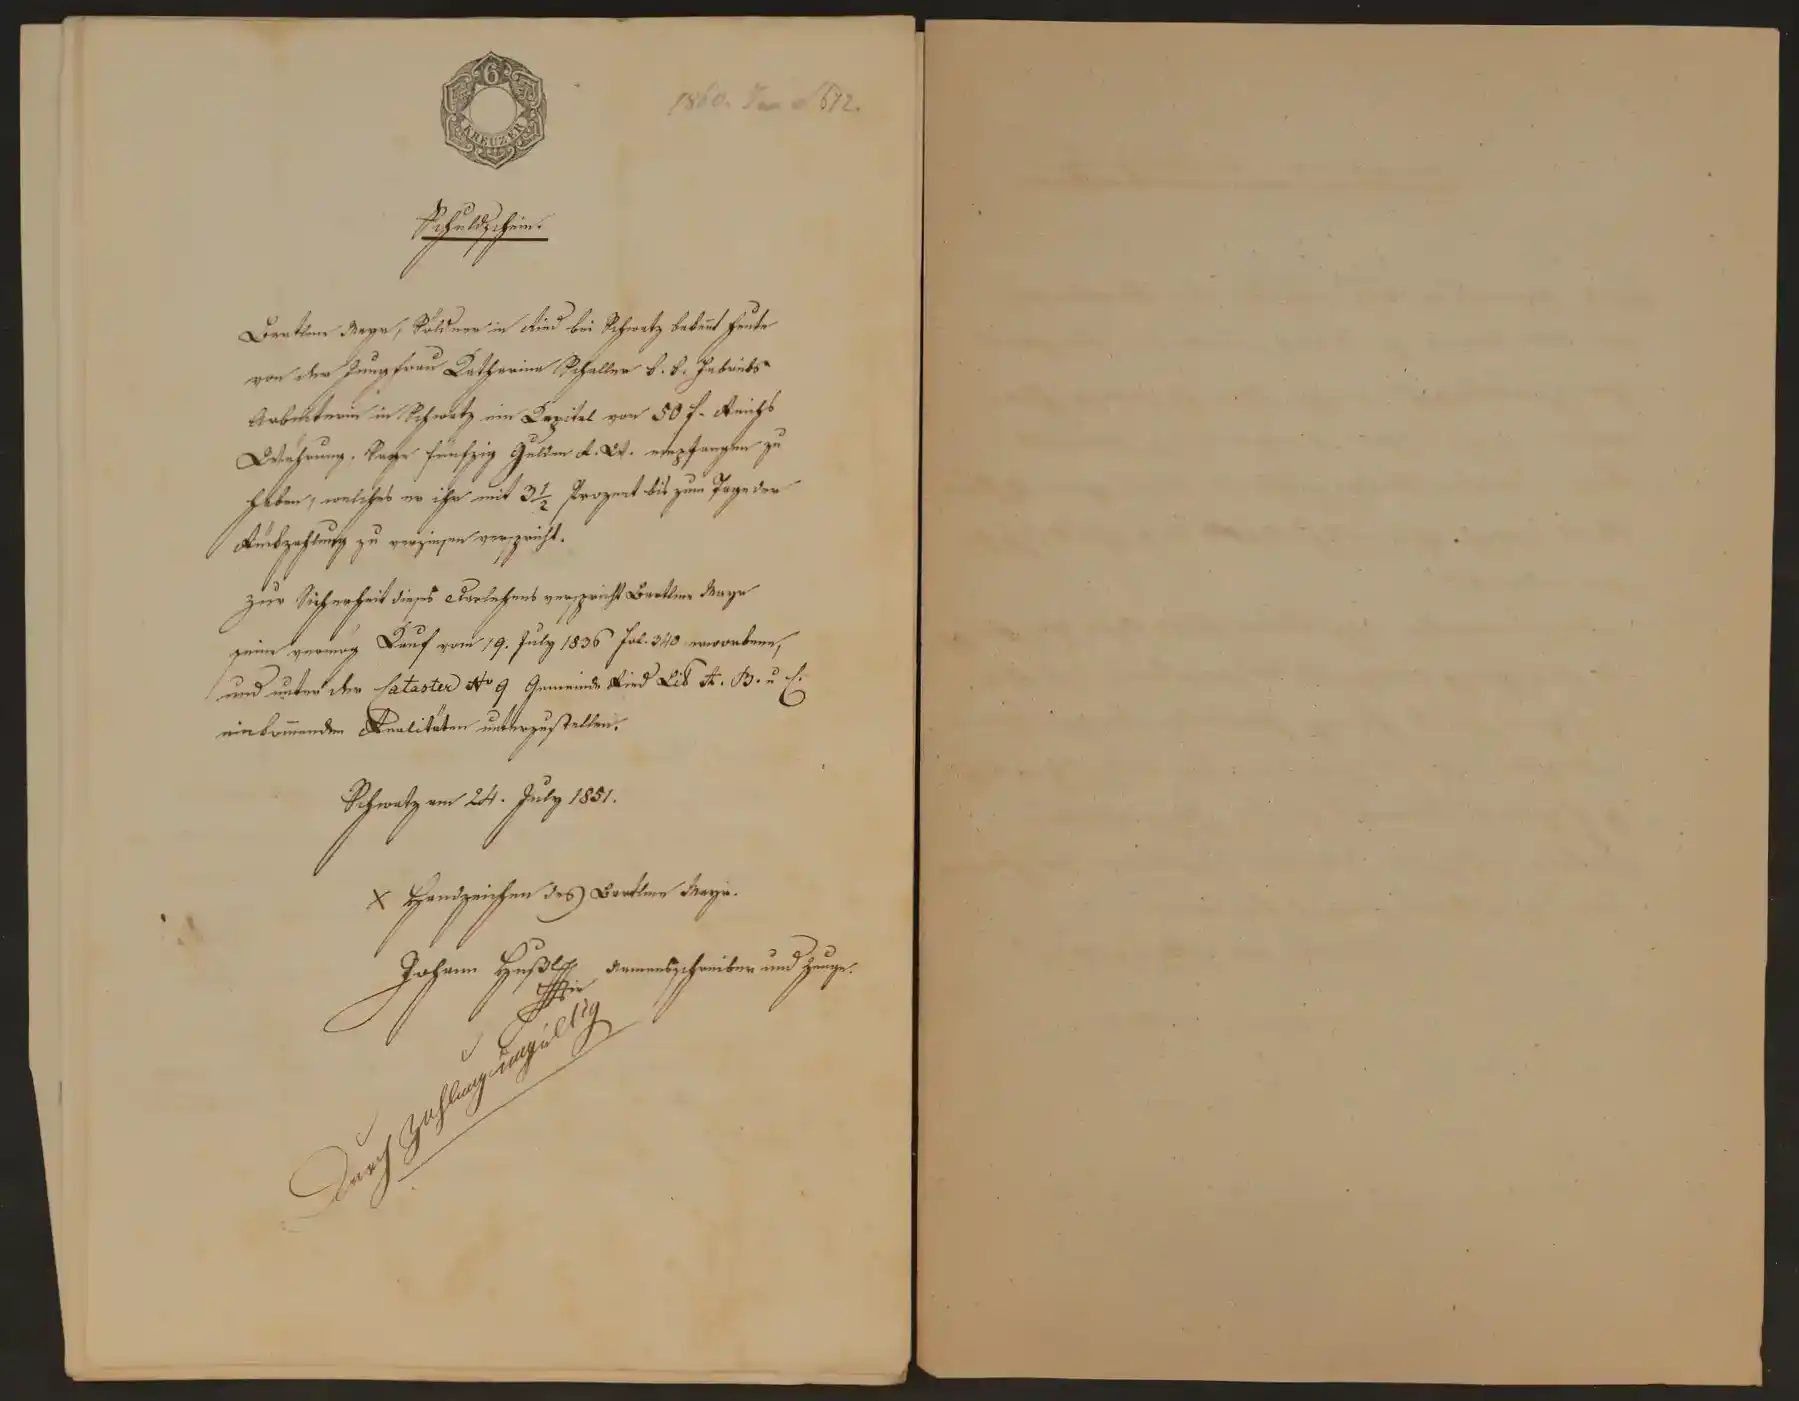 6
KREUZER
1860. 612.
Schuldschein.
Bartlme Mayr, Söldner in Ried bei Schwatz bekent heute
von der Jungfrau Katharina Schaller k. k. Fabriks-
Arbeiterin in Schwatz ein Kapital von 50 f. Reichs
Währung. Sage fünfzig Gulden R. W. empfangen zu
haben, welches er ihr mit 3 1/2 Prozent bis zum Tage der
Rückzahlung zu verzinsen verspricht.
Zur Sicherheit dieses Darlehens verspricht Bartlme Mayr
seine vermög Kauf vom 19. July 1836 Fol. 340 erworbene,
und unter der Cataster No 9 Gemeinde Ried Lit A. B. u C.
einkommenden Realitäten unterzustellen.
Schwatz am 24. July 1851.
X Handzeichen des Bartlme Mayr.
Johann Namensschreiber und Zeuge.
Durch Zahlung ungültig